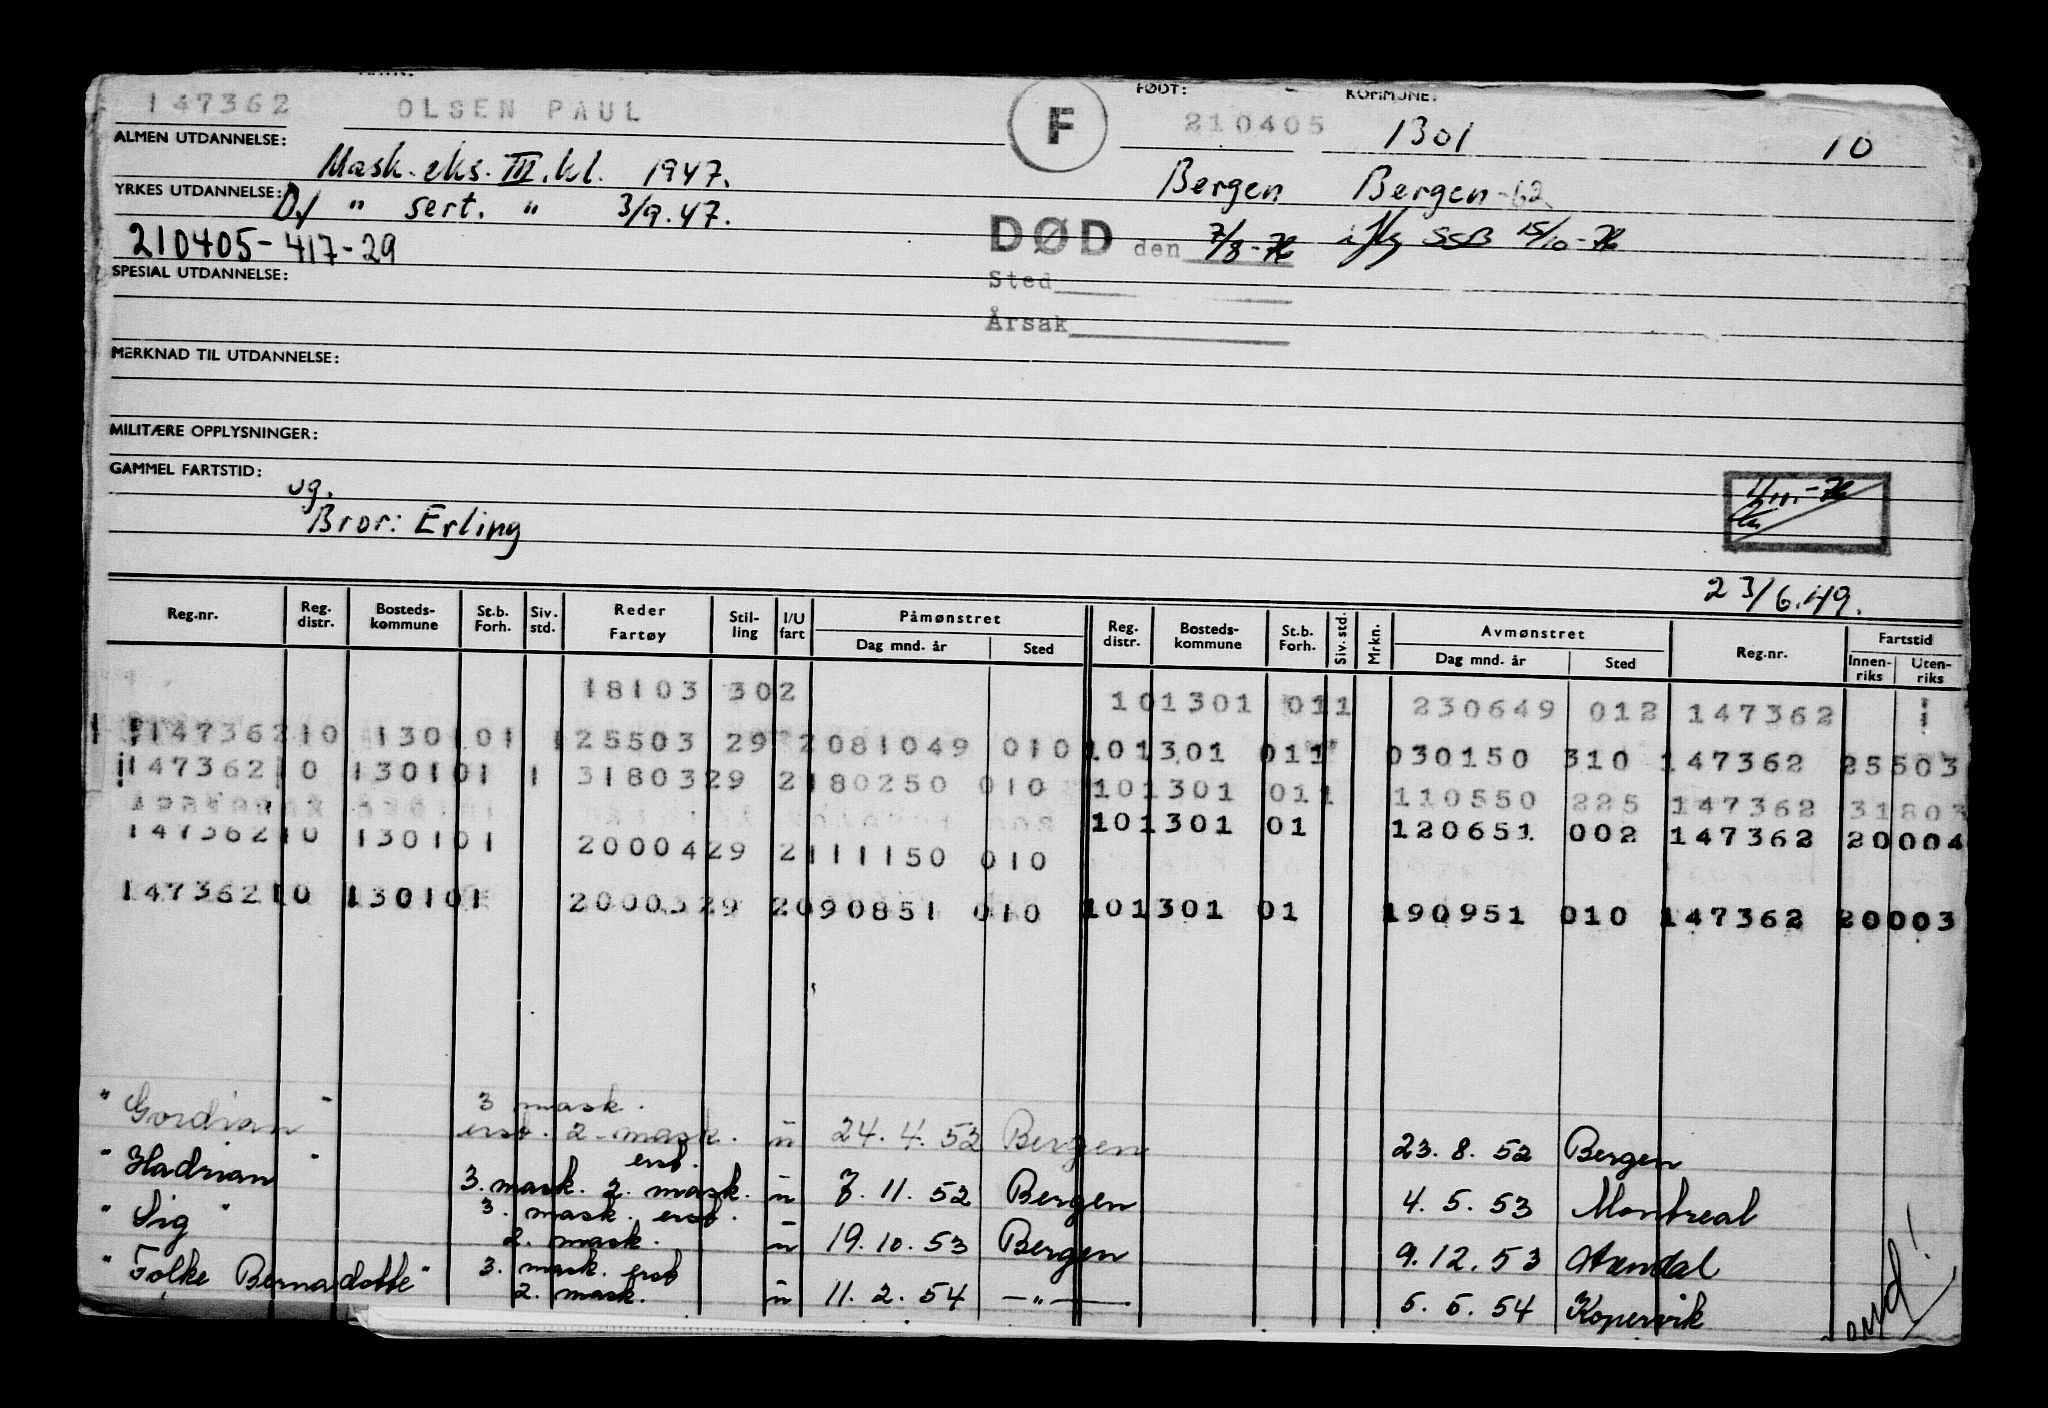 147362 OLSEN PAUL F FØDT: 210405 KOMMUNE: 1301 10
ALMEN UTDANNELSE: Mask. eks. III. kl. 1947. Bergen Bergen-62
YRKES UTDANNELSE: D/ " sert. " 3/9.47.
210405-417-29 DØD den 7/8-76 iflg SSB 15/10-76
SPESIAL UTDANNELSE: Sted
Årsak
MERKNAD TIL UTDANNELSE:
MILITÆRE OPPLYSNINGER:
GAMMEL FARTSTID: ug.
Bror: Erling
23/6.49.
Reg.nr. Reg. distr. Bosteds-kommune St.b. Forh. Siv. std. Reder Fartøy Stil-ling I/U fart Påmønstret Dag mnd. år Sted Reg. distr. Bosteds-kommune St.b. Forh. Siv. std. Mrkn. Avmønstret Dag mnd. år Sted Reg.nr. Fartstid Innen-riks Uten-riks
18103 302 101301 011 230649 012 147362
147362 10 130101 1 25503 29 2 081049 010 101301 011 030150 310 147362 25503
147362 10 130101 1 31803 29 2 180250 010 101301 011 110550 225 147362 31803
147362 10 130101 20004 29 2 111150 010 101301 01 120651 002 147362 20004
147362 10 130101 20003 29 2 090851 010 101301 01 190951 010 147362 20003
"Gordian" 3 mask. erst. 2. mask. u 24. 4. 52 Bergen 23. 8. 52 Bergen
"Hadrian" 3. mask. erst. 2. mask. u 7. 11. 52 Bergen 4. 5. 53 Montreal
"Sig" 3. mask. erst. 2. mask. u 19. 10. 53 Bergen 9. 12. 53
"Folke Bernadotte" 3. mask. erst 2. mask. u 11. 2. 54 —"— 5. 5. 54 Kopervik